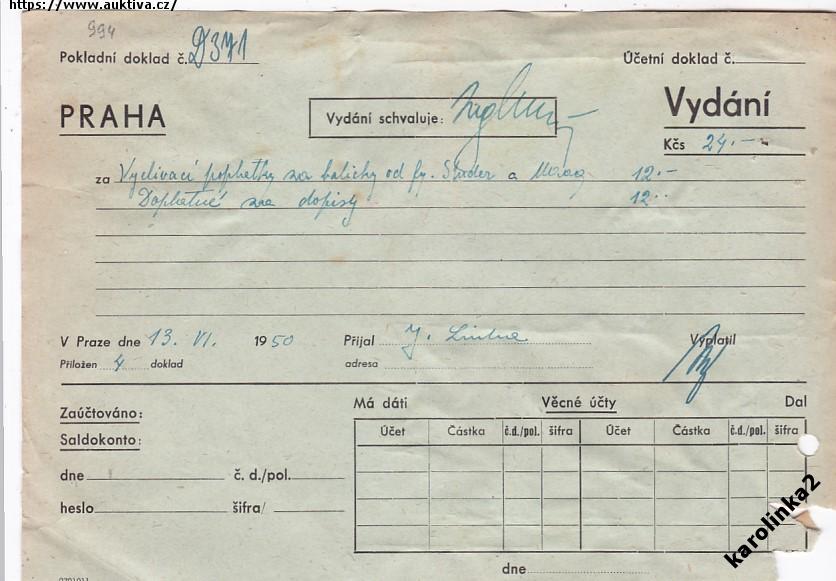 https://www.auktiva.cz/
994
Pokladní doklad č. D371
Účetní doklad č.
PRAHA
Vydání schvaluje:
Vydání
Kčs 24.--
za Vyclívací poplatky za balíčky od fy. Studer a 12.-
Doplatné za dopisy 12..
V Praze dne 13. VI. 1950
Přijal J.
Vyplatil
Přiložen 4 doklad
adresa
Zaúčtováno:
Saldokonto:
dne č. d./pol.
heslo šifra/
Má dáti Věcné účty Dal
Účet Částka č.d./pol. šifra Účet Částka č.d./pol. šifra
dne
karolinka2